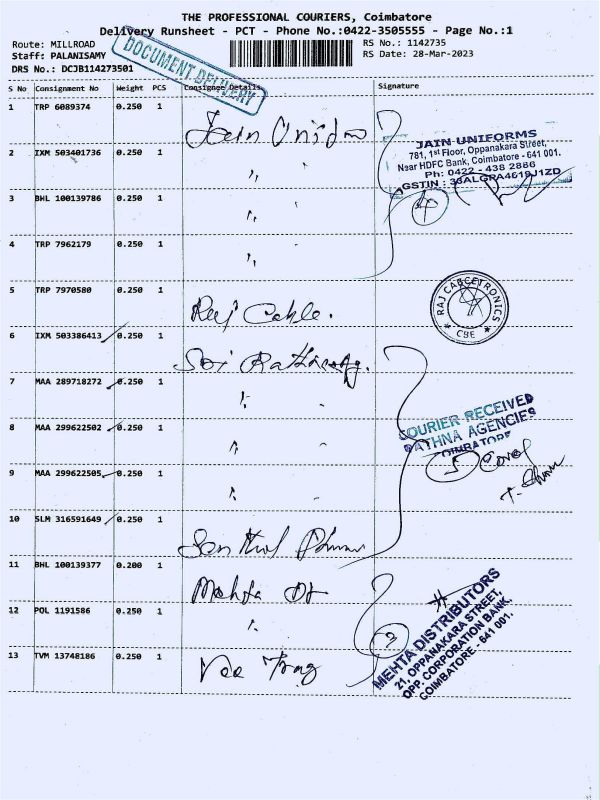 THE PROFESSIONAL COURIERS, Coimbatore
Delivery Runsheet - PCT - Phone No.:0422-3505555 - Page No.:1
Route: MILLROAD
Staff: PALANISAMY
DRS No.: DCJB114273501
DOCUMENT DELIVERY
RS No.: 1142735
RS Date: 28-Mar-2023
S No Consignment No Weight PCS Consignee Details Signature
1 TRP 6089374 0.250 1 Jain Uniform
JAIN UNIFORMS
781, 1st Floor, Oppanakara Street,
Near HDFC Bank, Coimbatore - 641 001.
Ph: 0422 - 438 2886
GSTIN : 33ALGRA4619J1ZD
4
2 IXM 503401736 0.250 1 " "
3 BHL 100139786 0.250 1 " "
4 TRP 7962179 0.250 1 "
5 TRP 7970580 0.250 1 Raj Cable.
RAJ CABCETRONICS
CBE
6 IXM 503386413 0.250 1 Sri Rathna Ag.
7 MAA 289718272 0.250 1 " "
8 MAA 299622502 0.250 1 " "
COURIER RECEIVED
RATHNA AGENCIES
COIMBATORE
5 Cover
9 MAA 299622505 0.250 1 " "
10 SLM 316591649 0.250 1
11 BHL 100139377 0.200 1 Mehta Dt
12 POL 1191586 0.250 1 "
MEHTA DISTRIBUTORS
21, OPPANAKARA STREET,
OPP. CORPORATION BANK,
COIMBATORE - 641 001.
13 TVM 13748186 0.250 1 Vee